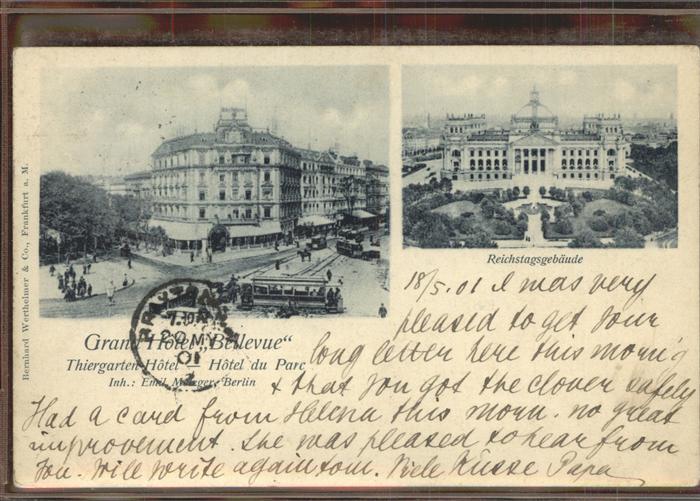 Bernhard Werthelmer & Co., Frankfurt a. M.
Reichstagsgebäude
Grand Hôtel „Bellevue“
Thiergarten-Hôtel — Hôtel du Parc
Inh.: Emil Metzger, Berlin
20 MY
01
18/5. 01 I was very
pleased to get your
long letter here this morn'g
& that you got the clover safely
Had a card from Helena this morn. no great
improvement. She was pleased to hear from
You. Will write again tom. Viele Küsse Papa